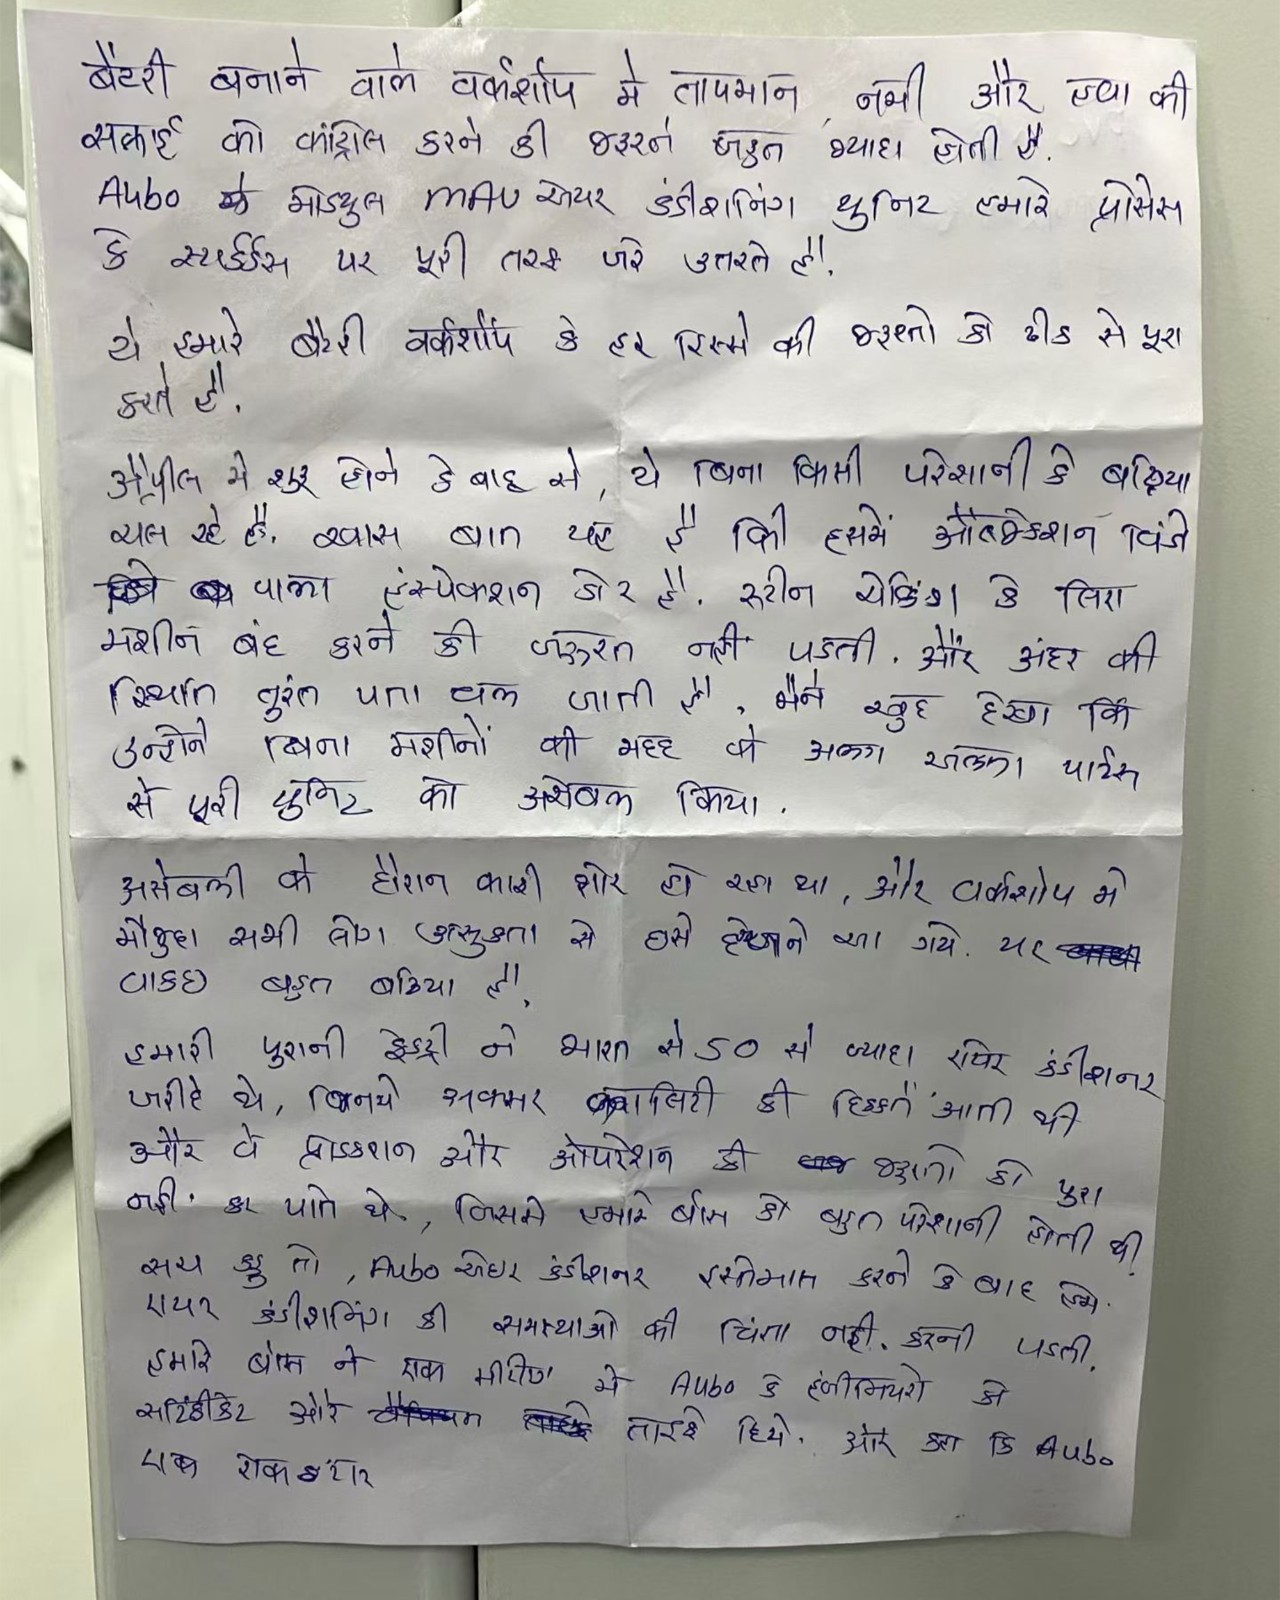 बैटरी बनाने वाले वर्कशॉप मे तापमान, नमी और हवा की
सफाई को कंट्रोल करने की जरूरत बहुत ज्यादा होती है.
Aubo के मोड्युल MAU एयर कंडीशनिंग युनिट हमारे प्रोसेस
के पर पूरी तरह खरे उतरते है.
ये हमारे बैटरी वर्कशॉप के हर हिस्से की जरूरतो को ठीक से पूरा
करते है.
अप्रील मे शुरू होने के बाद से, ये बिना किसी परेशानी के बढ़िया
चल रहे है. खास बात यह है की इसमें विंडो
वाला इंस्पेकशन डोर है. रूटीन चेकिंग के लिए
मशीन बंद करने की जरूरत नहीं पडती. और अंदर की
स्थिति तुरंत पता चल जाती है, मैने खुद देखा कि
उन्होने बिना मशीनों की मदद के अलग अलग पार्टस
से पूरी युनिट को असेंबल किया.
असेंबली के दौरान काफी शोर हो रहा था, और वर्कशोप मे
मौजुदा सभी लोग उत्सुकता से इसे देखने आ गये. यह
वाकइ बहुत बढिया है.
हमारी पुरानी फेक्ट्री ने भारत से 50 से ज्यादा एयर कंडीशनर
खरीदे थे, जिनमे अक्सर क्वालिटी की दिक्कतें आती थी
और वे प्रोडक्शन और ओपरेशन की जरूरतो को पुरा
नहीं कर पाते थे, जिससे हमारे बॉस को बहुत परेशानी होती थी.
सच कहु तो, Aubo एयर कंडीशनर इस्तेमाल करने के बाद हमे
एयर कंडीशनिंग की समस्याओ की चिंता नही करनी पडती.
हमारे बॉस ने एक मीटींग मे Aubo के इंजीनियरो को
सर्टिफीकेट और तोहफे दिये. और कहा कि Aubo
एक शानदार